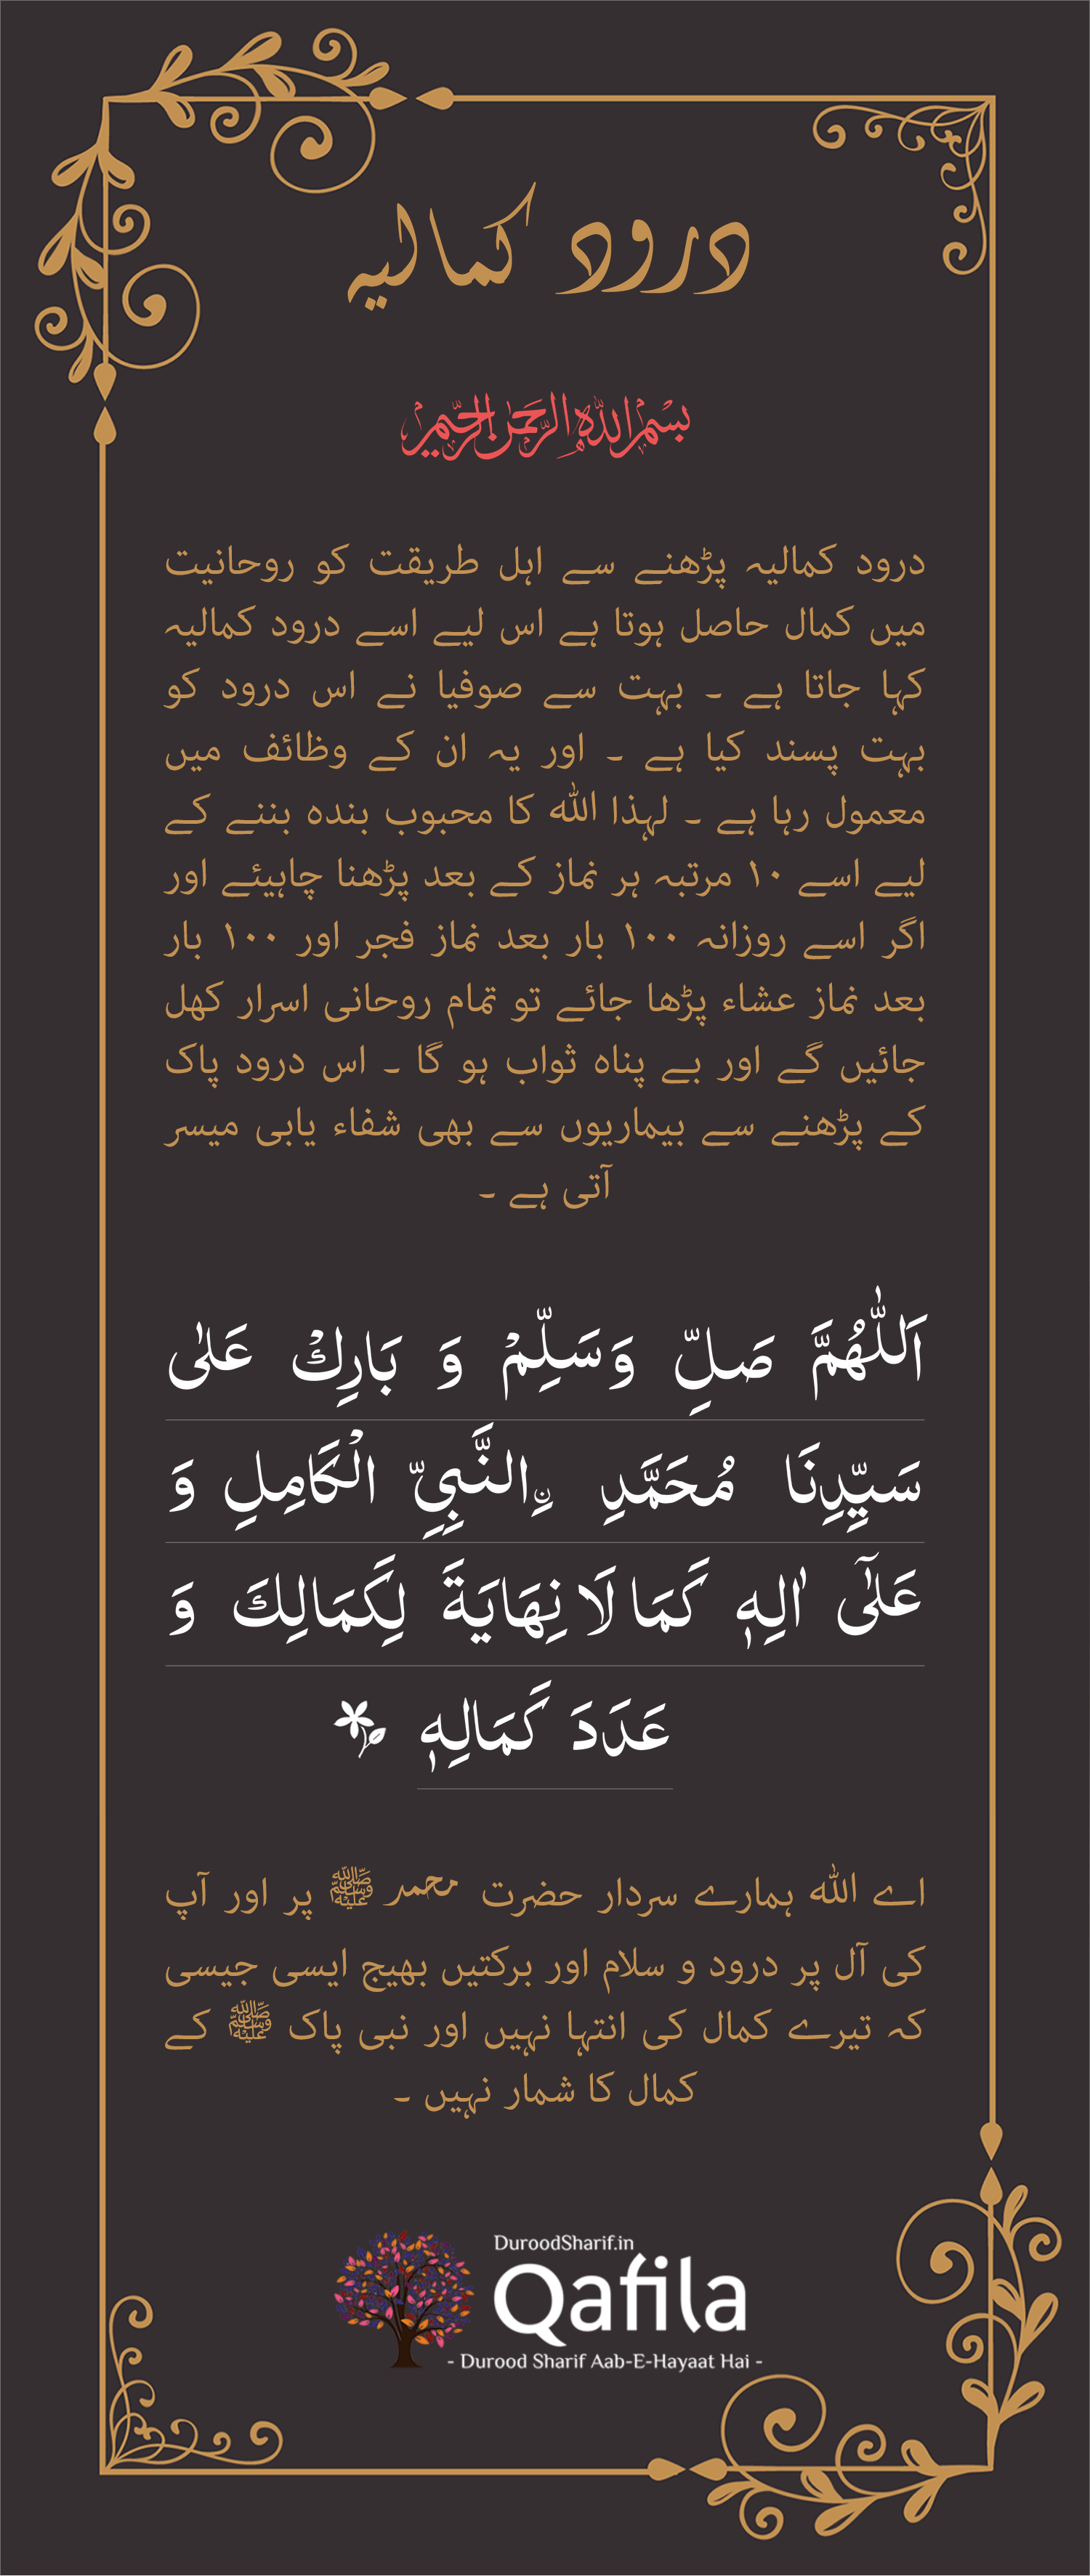 درود کمالیہ
بسم الله الرحمن الرحيم
درود کمالیہ پڑھنے سے اہل طریقت کو روحانیت
میں کمال حاصل ہوتا ہے اس لیے اسے درود کمالیہ
کہا جاتا ہے ۔ بہت سے صوفیا نے اس درود کو
بہت پسند کیا ہے ۔ اور یہ ان کے وظائف میں
معمول رہا ہے ۔ لہذا اللہ کا محبوب بندہ بننے کے
لیے اسے ۱۰ مرتبہ ہر نماز کے بعد پڑھنا چاہیئے اور
اگر اسے روزانہ ۱۰۰ بار بعد نماز فجر اور ۱۰۰ بار
بعد نماز عشاء پڑھا جائے تو تمام روحانی اسرار کھل
جائیں گے اور بے پناہ ثواب ہو گا ۔ اس درود پاک
کے پڑھنے سے بیماریوں سے بھی شفاء یابی میسر
آتی ہے ۔
اَللّٰهُمَّ صَلِّ وَسَلِّمْ وَ بَارِكْ عَلٰى
سَيِّدِنَا مُحَمَّدِ ۣالنَّبِيِّ الْكَامِلِ وَ
عَلٰٓى اٰلِهٖ كَمَا لَا نِهَايَةَ لِكَمَالِكَ وَ
عَدَدَ كَمَالِهٖ
اے اللہ ہمارے سردار حضرت محمد ﷺ پر اور آپ
کی آل پر درود و سلام اور برکتیں بھیج ایسی جیسی
کہ تیرے کمال کی انتہا نہیں اور نبی پاک ﷺ کے
کمال کا شمار نہیں ۔
DuroodSharif.in
Qafila
- Durood Sharif Aab-E-Hayaat Hai -